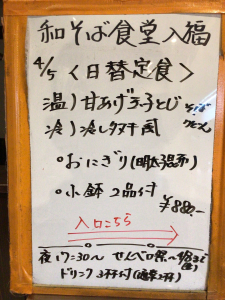 和そば食堂 入福
4/5 <日替定食>
温) 甘あげ玉子とじ そば
冷) 冷しタヌキ風 うどん
・おにぎり(明太昆布)
・小鉢 2品付
¥880.-
入口こちら
夜 17:30〜 せんべロ祭〜
ドリンク 3杯付